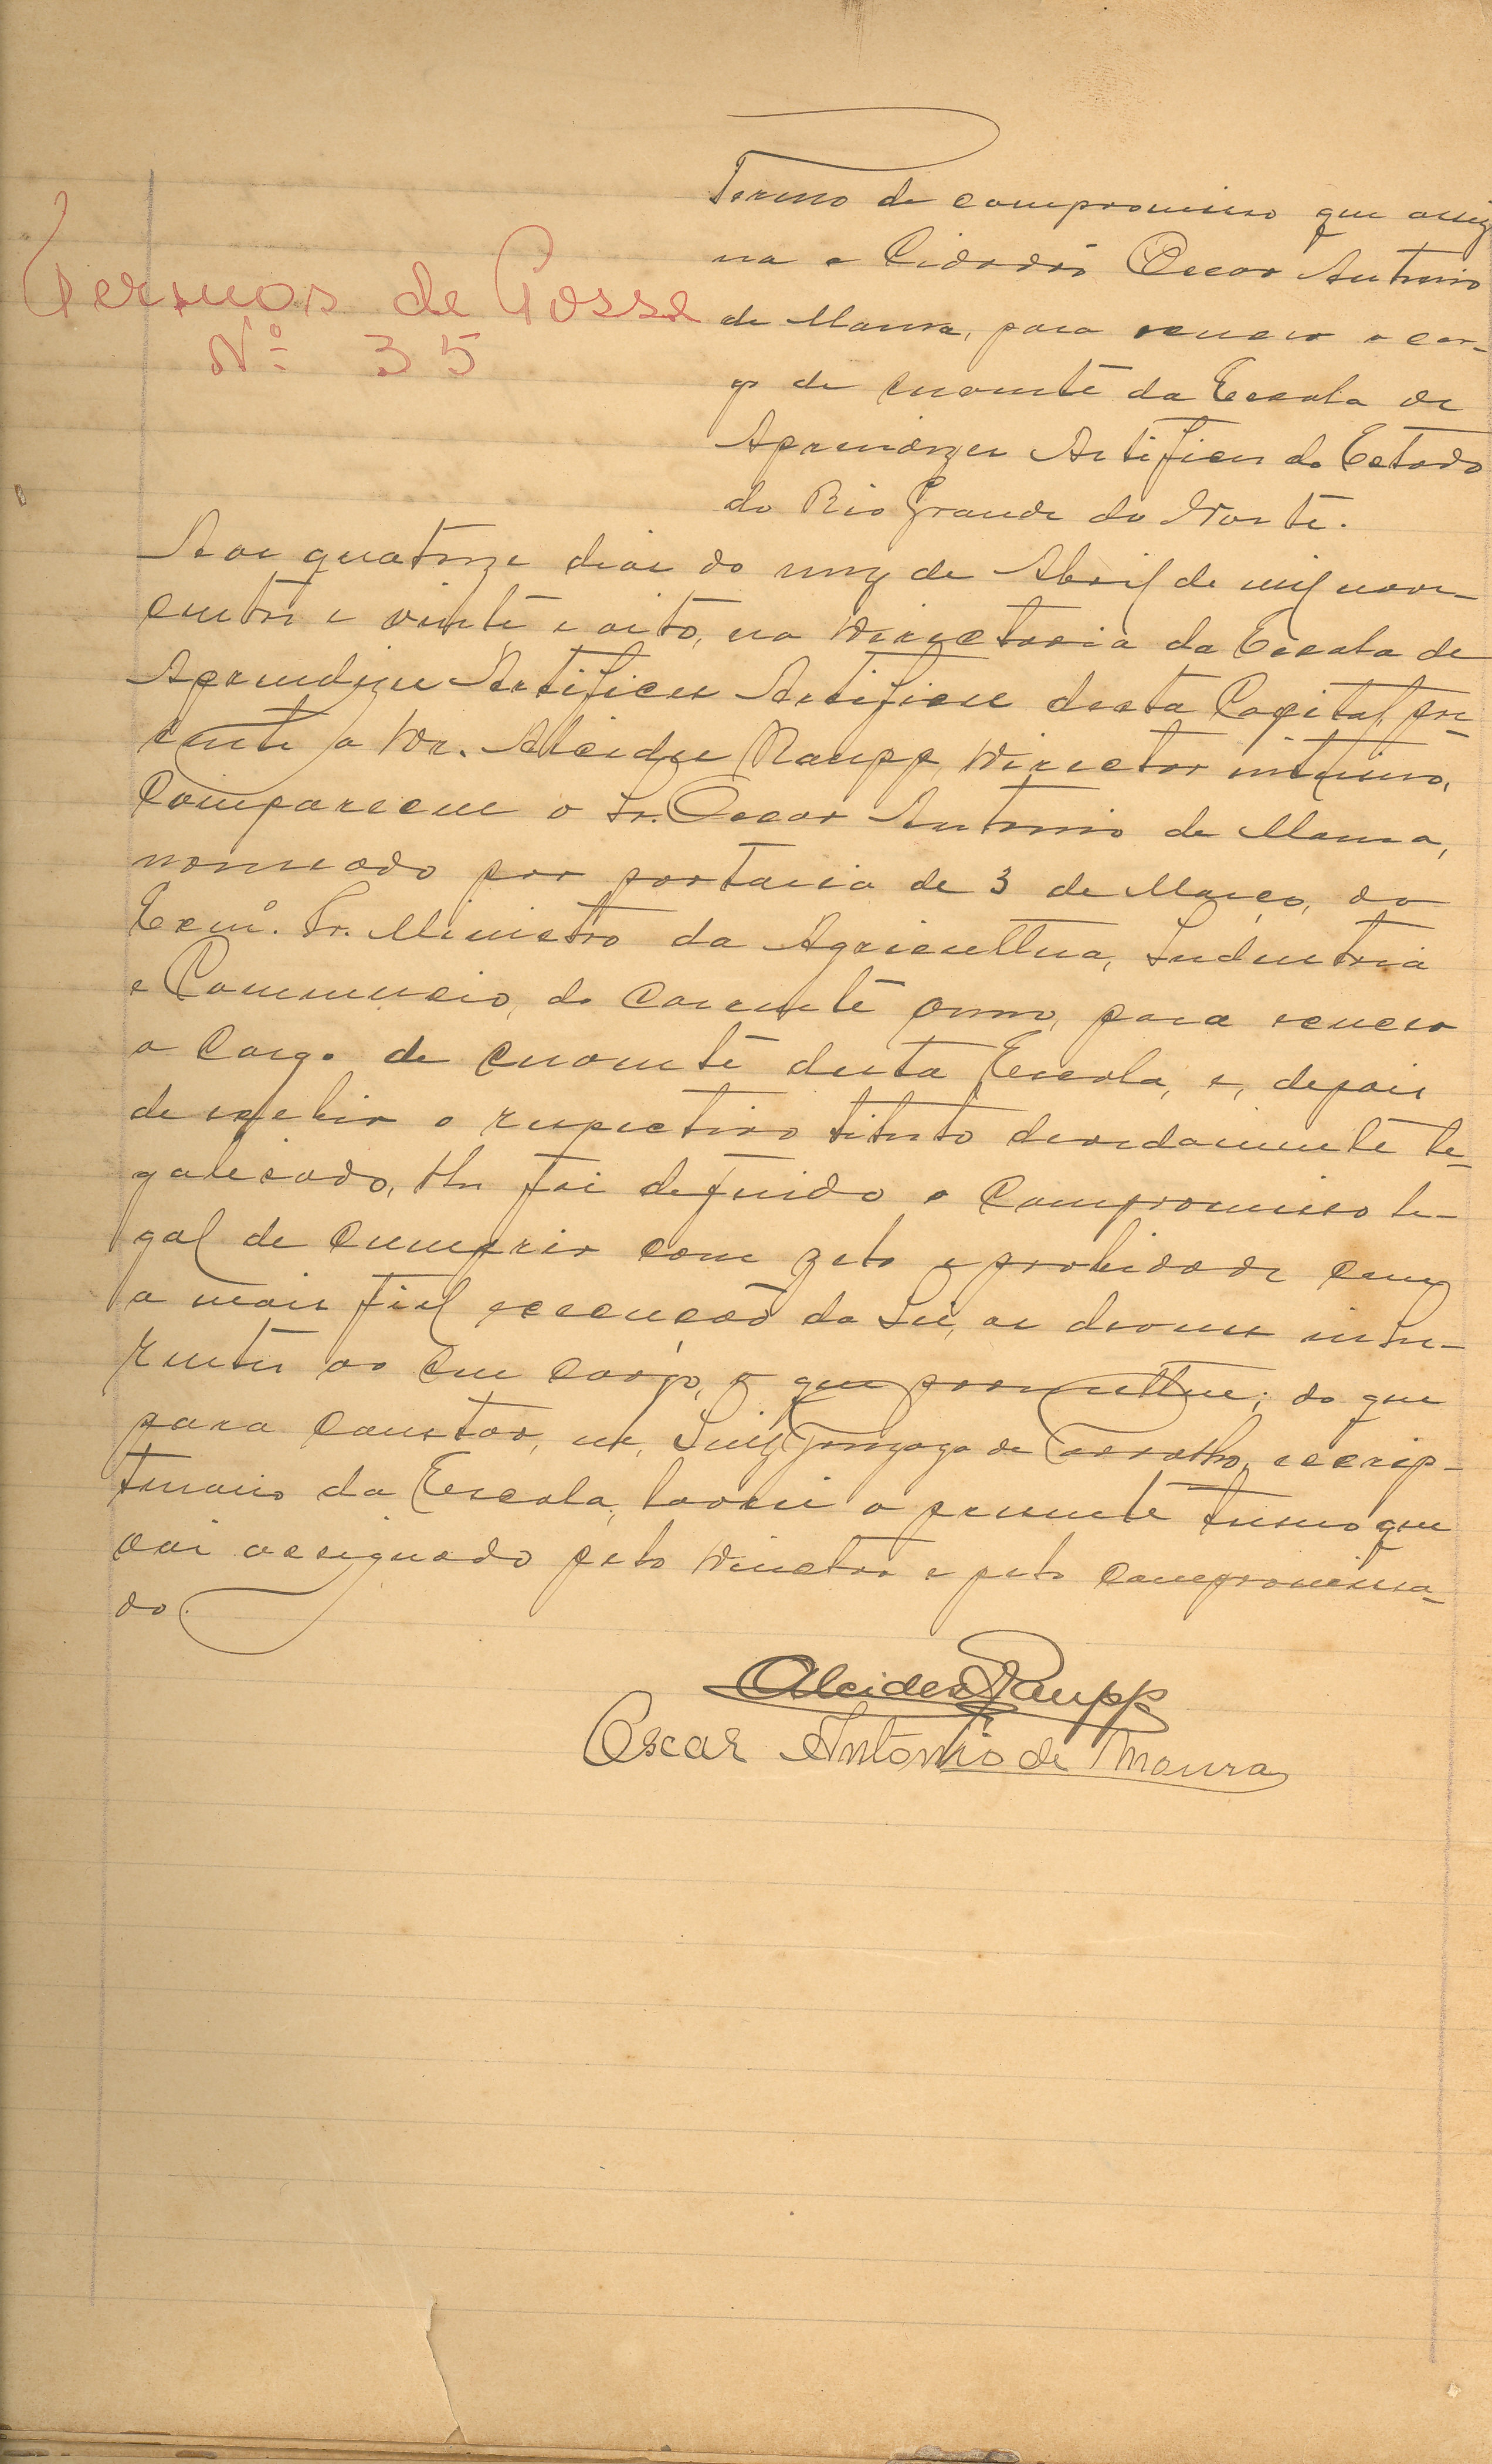 Termo de compromisso que assig
na o Cidadão Oscar Antonio
de Moura, para exercer o car-
go de servente da Escola de
Aprendizes Artifices do Estado
do Rio Grande do Norte.
Termos de Posse
Nº 35
Aos quatorze dias do mez de Abril de mil nove-
centos e vinte e oito, na Directoria da Escola de
Aprendizes Artifices Artifices desta Capital, pre-
sente o Dr. Alcides Raupp, Director interino,
compareceu o Sr. Oscar Antonio de Moura,
nomeado por portaria de 3 de Março, do
Exmº. Sr. Ministro da Agricultura, Industria
e Commercio, do corrente anno, para exercer
o cargo de servente desta Escola, e, depois
de exhibir o respectivo titulo devidamente le-
galisado, lhe foi deferido o compromisso le-
gal de cumprir com zelo e probidade com
a mais fiel execução da Lei, os deveres inhe-
rentes ao seu cargo, o que prometteu; do que
para constar, eu, Luiz Gonzaga de Carvalho, escrip-
turario da Escola, lavrei o presente termo que
vai assignado pelo Director e pelo compromissa-
do.
Alcides Raupp
Oscar Antonio de Moura